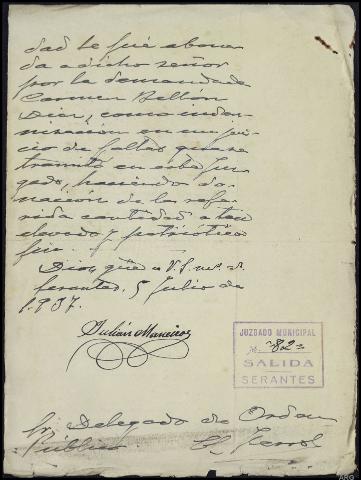 dad le fué abona
da a dicho señor
por la demandada
Carmen Bellón
Diaz, como indem
nización en un jui-
cio de faltas que se
tramitó en este Juz
gado, haciendo do-
nación de la refe-
rida cantidad a tan
elevado y patriótico
fin.
Dios gûe a V.S. m. a.
Serantes, 5 Julio de
1.937.
Julián
JUZGADO MUNICIPAL
Nº 82
SALIDA
SERANTES
Sr. Delegado de Orden
Público El Ferrol